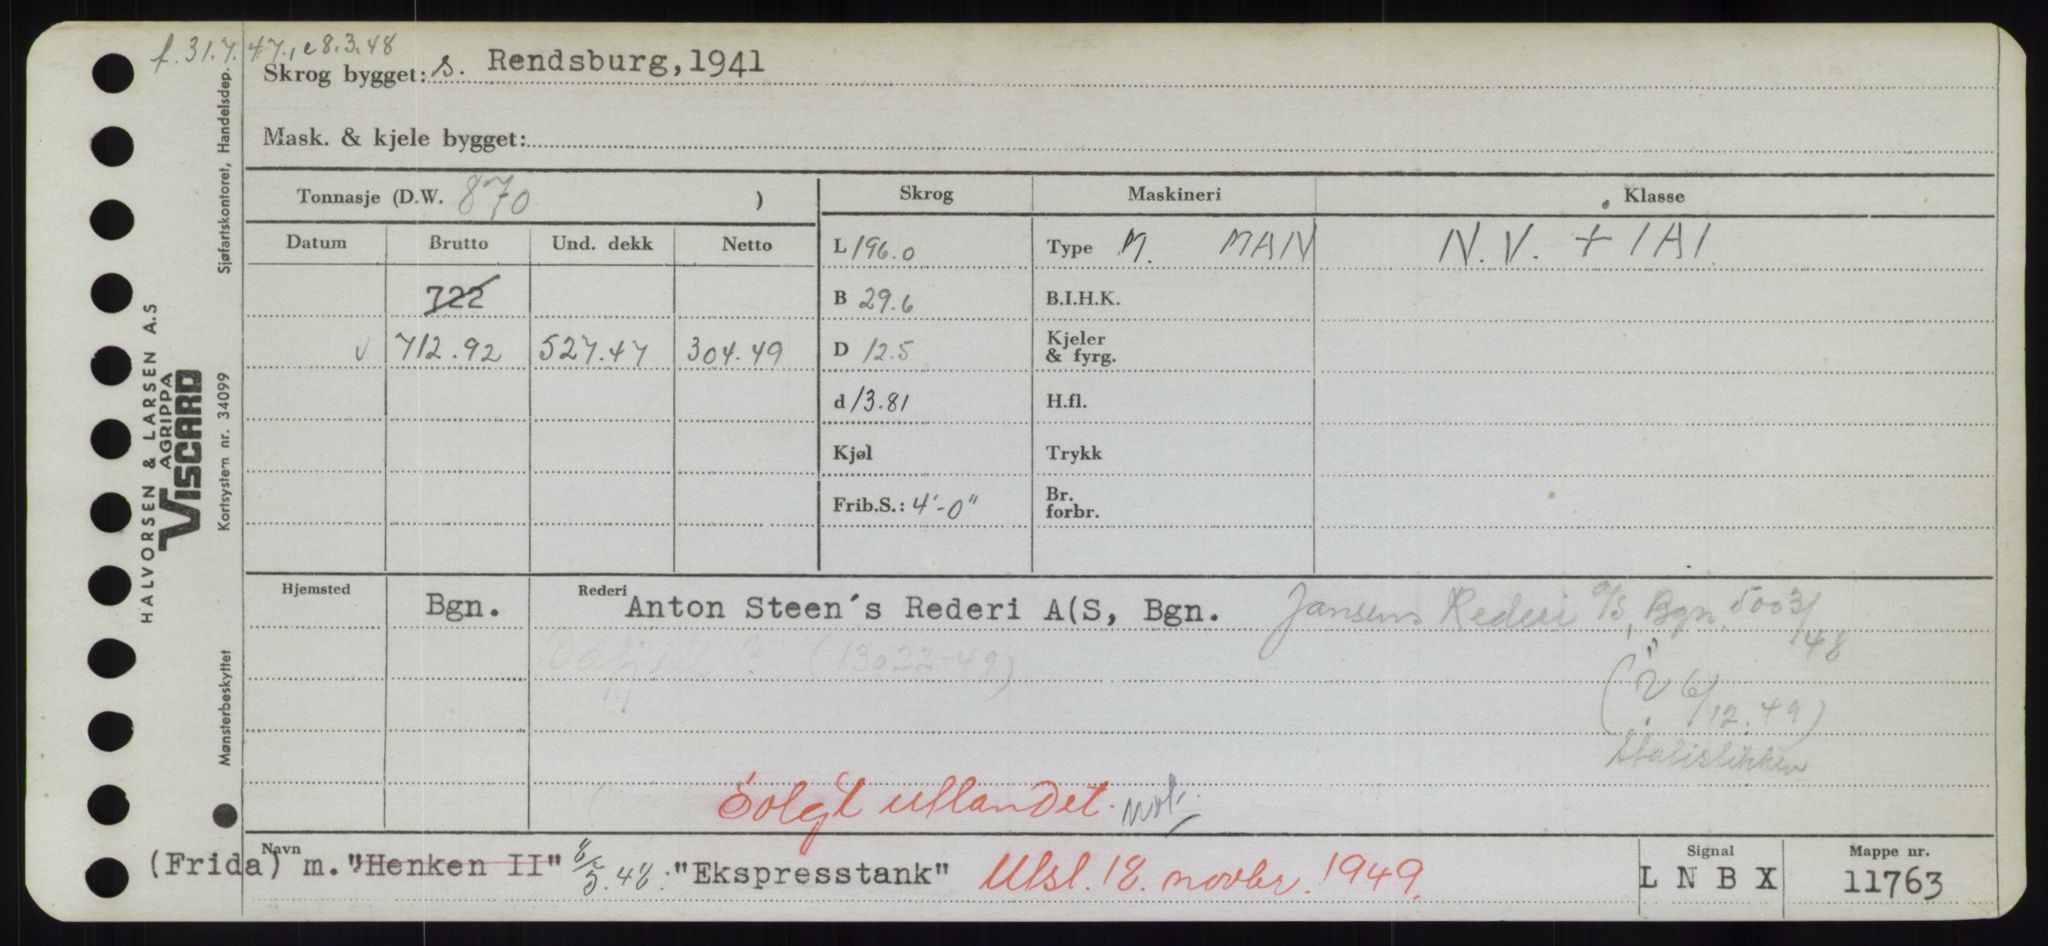 f. 31.7.47., e 8.3.48
Skrog bygget: s. Rendsburg, 1941
Mask. & kjele bygget:
Tonnasje (D.W. 870 )
Skrog Maskineri Klasse
Datum Brutto Und. dekk Netto
L 196.0 Type M. MAN N.V. + 1A1
722 B 29.6 B.I.H.K.
v 712.92 527.47 304.49 D 12.5 Kjeler & fyrg.
d 13.81 H.fl.
Kjøl Trykk
Frib.S.: 4'-0" Br. forbr.
Hjemsted Bgn. Rederi Anton Steen´s Rederi A(S, Bgn. Jansens Rederi A/S, Bgn. 5003/48
Odfjell ? (13022-49)
" 6/12.49)
Statistikken
Solgt utlandet.
Navn
(Frida) m. "Henken II" 8/5.48: "Ekspresstank" Utsl. 18. novbr. 1949.
Signal
L N B X
Mappe nr.
11763
Sjøfartskontoret, Handelsdep.
HALVORSEN & LARSEN A.S
AGRIPPA
VISCARD
Kortsystem nr. 34099
Mønsterbeskyttet